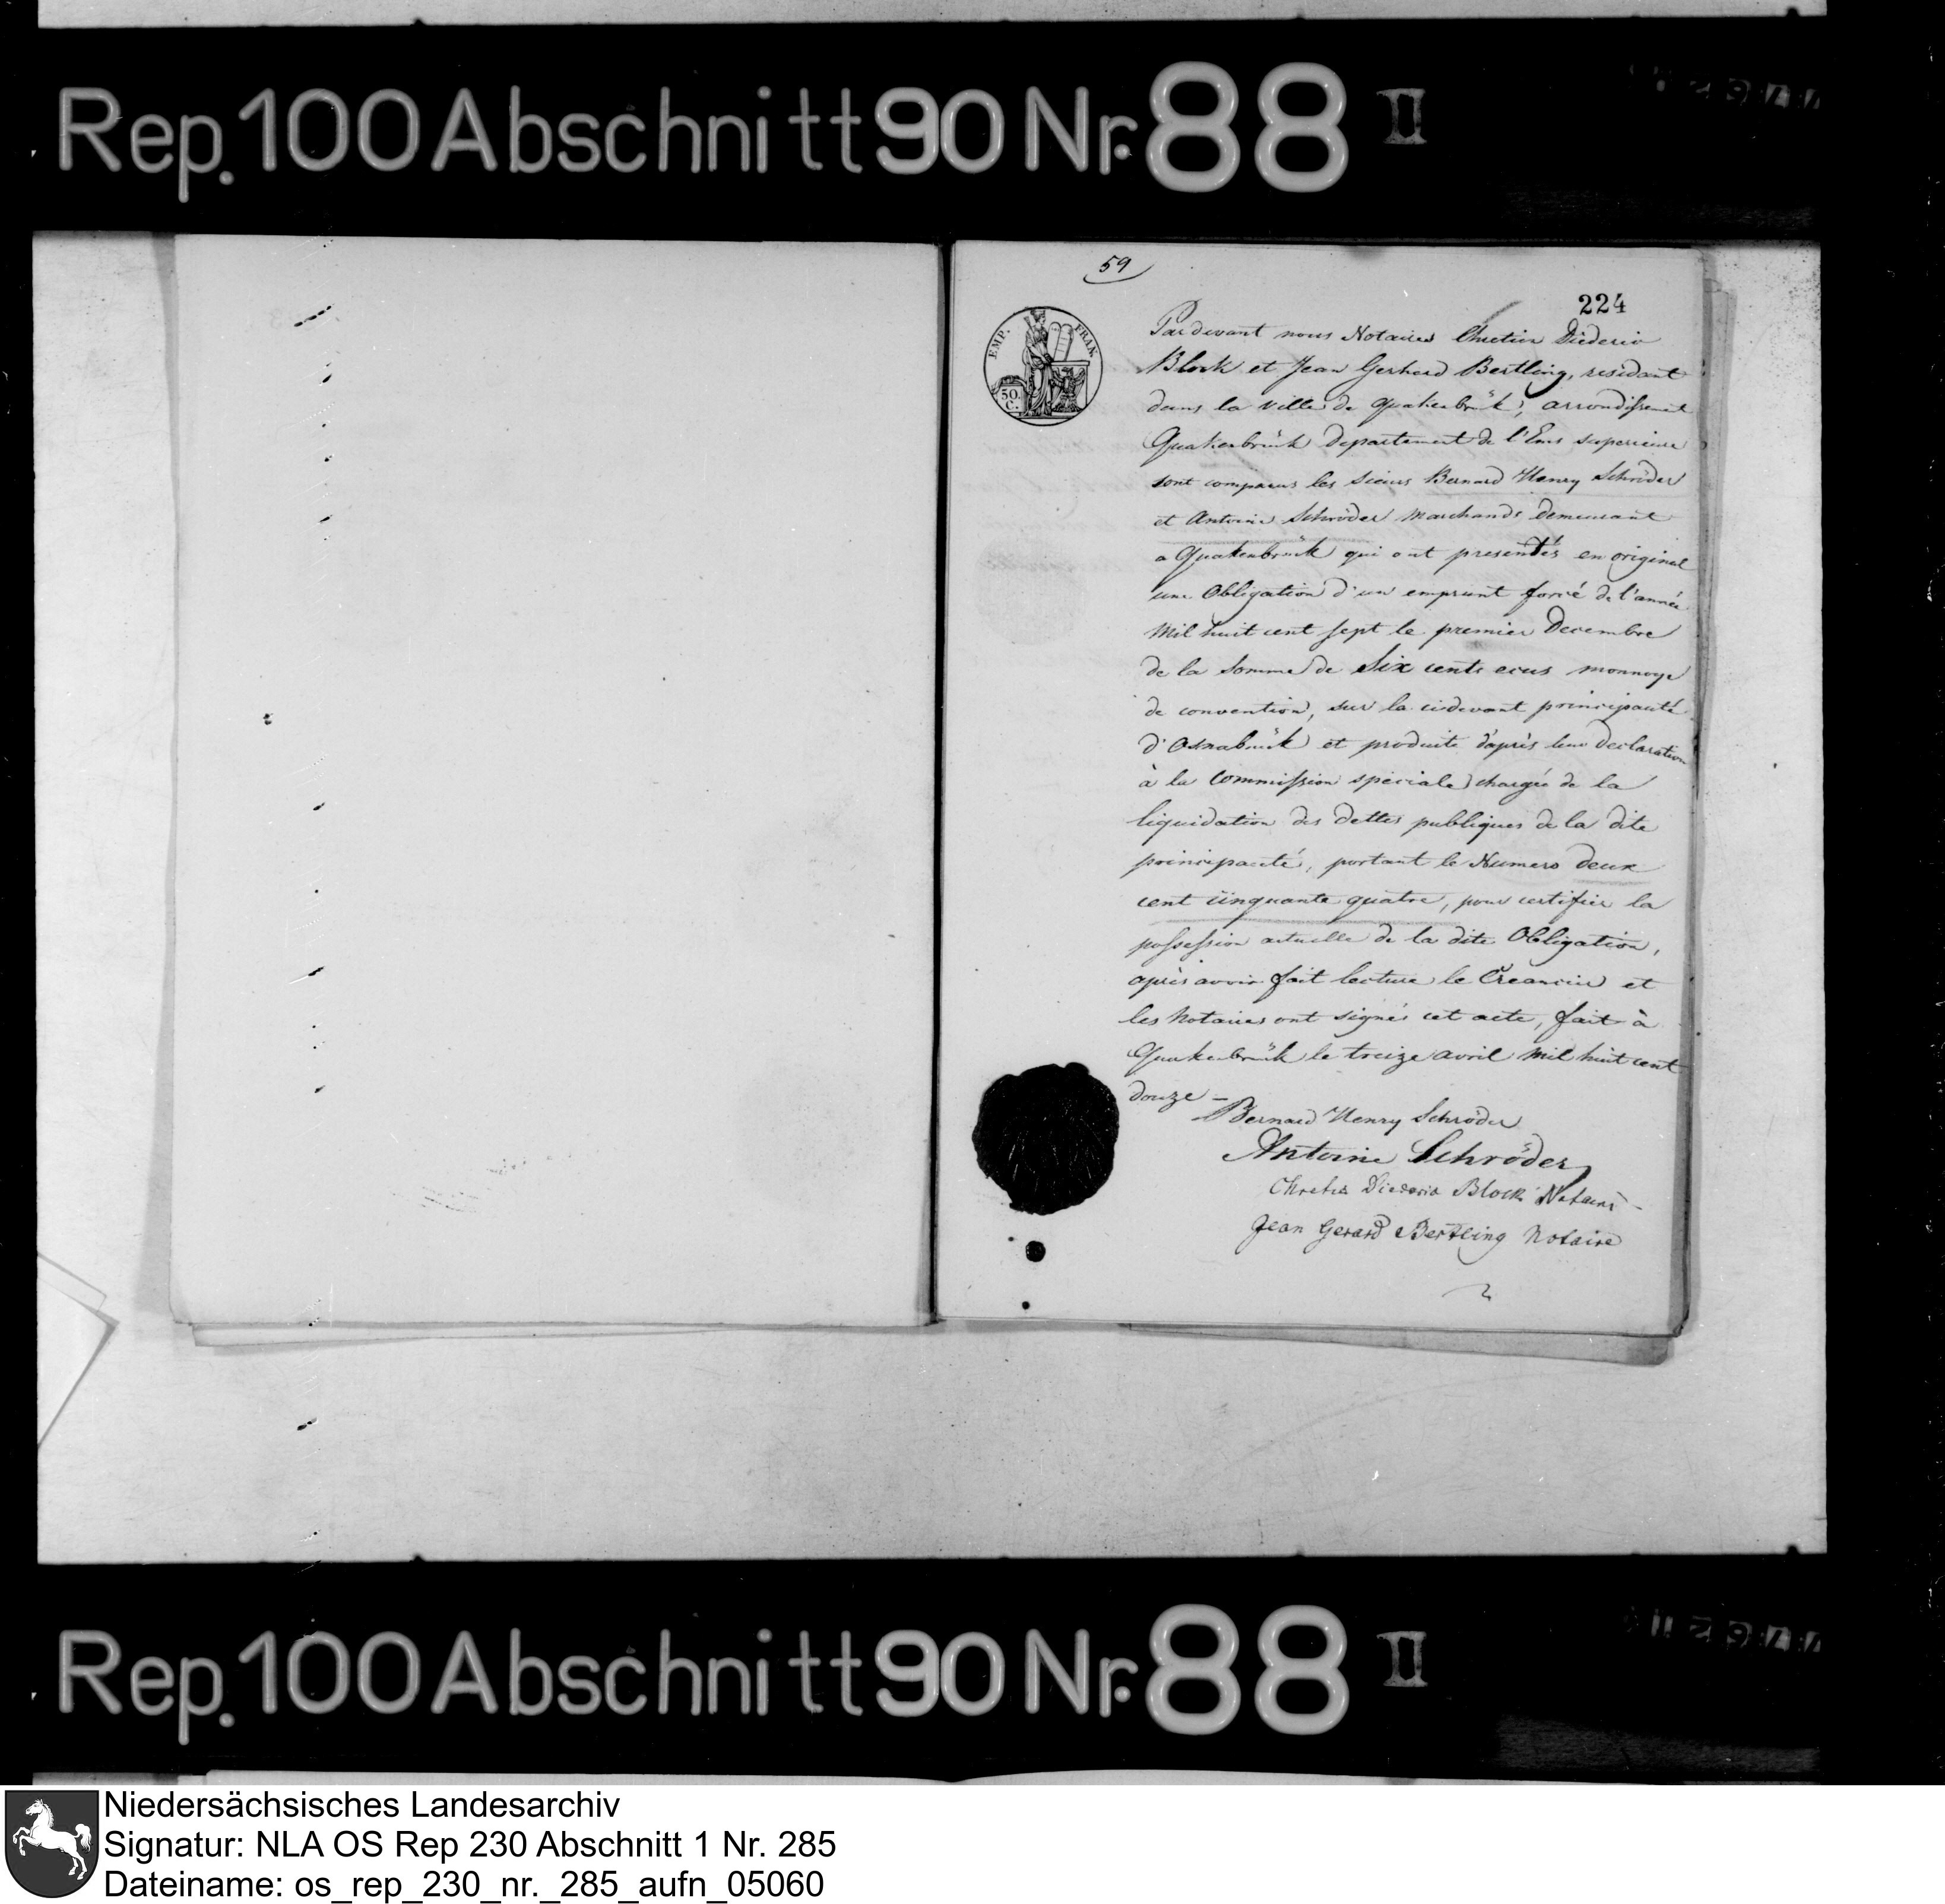 Rep. 100 Abschnitt 90 Nr. 88 II
59
224
EMP. FRAN.
50. C.
Pardevant nous Notaires Chretien Diederic
Block et Jean Gerhard Bertling, residant
dans la ville de Quakenbrük, arrondissement
Quakenbrück departement de l'Ems superieure
sont comparus les sieurs Bernard Henry Schröder
et Antoine Schröder marchands demeurant
a Quakenbrück qui ont presentés en original
une Obligation d'un emprunt forcé de l'année
mil huit cent sept le premier Decembre
de la somme de Six cents ecus monnoye
de convention, sur la cidevant principauté
d'Osnabruck et produite d'après leur declaration
à la Commission speciale chargée de la
liquidation des dettes publiques de la dite
principauté, portant le Numero deux
cent cinquante quatre, pour certifier la
possession actuelle de la dite Obligation,
après avoir fait lecture le Creancier et
les Notaires ont signés cet acte, fait à
Quakenbrück le treize avril mil huit cent
douze –
Bernard Henry Schröder
Antoine Schröder
Chretien Diederic Block Notaire
Jean Gerard Bertling Notaire
Rep. 100 Abschnitt 90 Nr. 88 II
Niedersächsisches Landesarchiv
Signatur: NLA OS Rep 230 Abschnitt 1 Nr. 285
Dateiname: os_rep_230_nr._285_aufn_05060